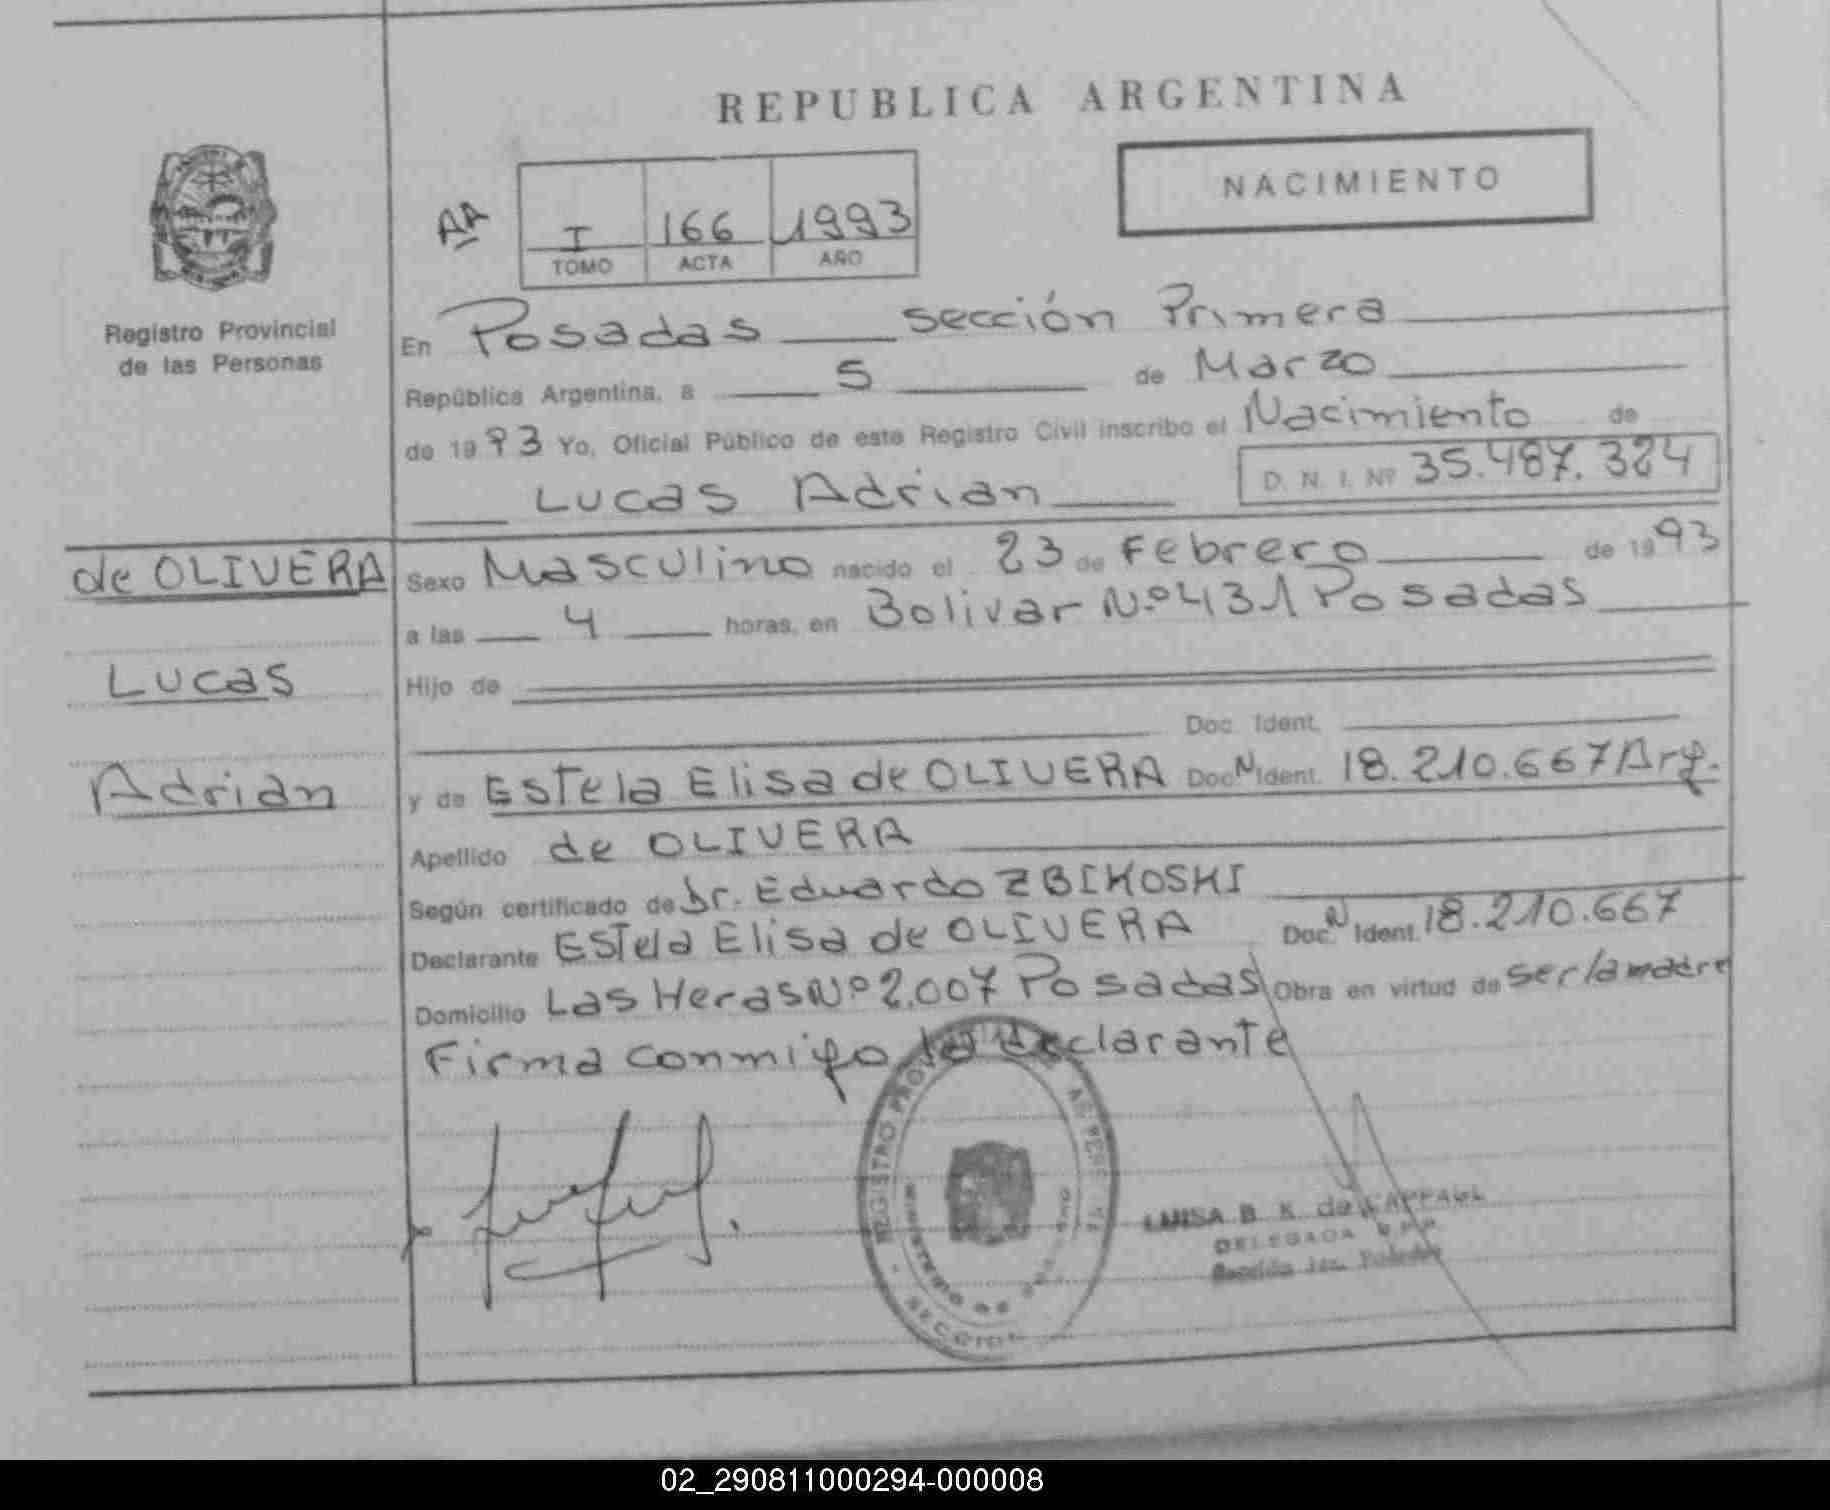 REPUBLICA ARGENTINA
NACIMIENTO
AA
I 166 1993
TOMO ACTA AÑO
Registro Provincial
de las Personas
En Posadas sección Primera
República Argentina, a 5 de Marzo
de 1993 Yo, Oficial Público de este Registro Civil inscribo el Nacimiento de
Lucas Adrian D. N. I. Nº 35.487.324
de OLIVERA
Lucas
Adrian
Sexo Masculino nacido el 23 de Febrero de 1993
a las 4 horas, en Bolivar Nº 431 Posadas
Hijo de
Doc. Ident.
y de Estela Elisa de OLIVERA Doc. N Ident. 18.210.667 Arg.
Apellido de OLIVERA
Según certificado de Dr. Eduardo ZBIKOSKI
Declarante Estela Elisa de OLIVERA Doc. N Ident. 18.210.667
Domicilio Las Heras Nº 2.007 Posadas Obra en virtud de ser la madre
Firma conmigo la declarante
REGISTRO
SECCION
LUISA B. K. de
DELEGADA
Sección 1ra. Posadas
02_290811000294-000008